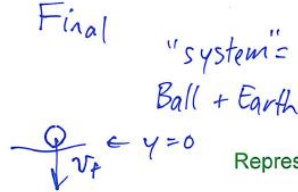 Final
"system"=
Ball + Earth
← y=0
v_f
Repres